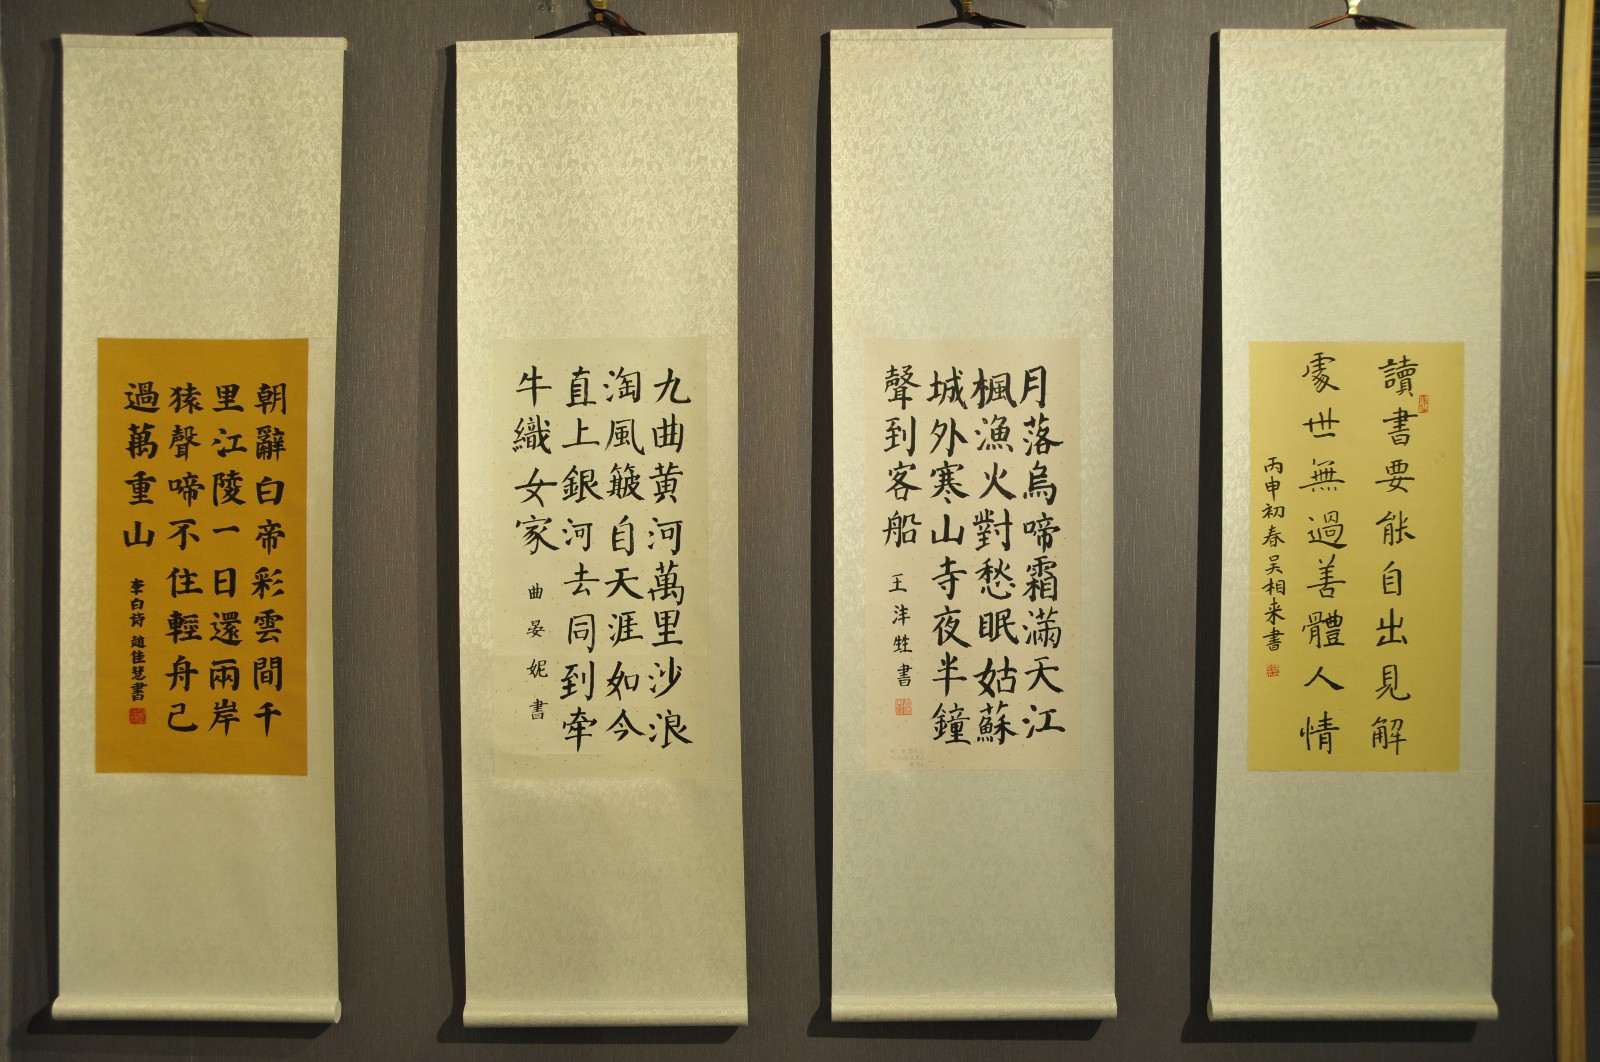 朝辭白帝彩雲間千
里江陵一日還兩岸
猿聲啼不住輕舟已
過萬重山
李白诗 趙佳慧書
九曲黄河萬里沙浪
淘風簸自天涯如今
直上銀河去同到牽
牛織女家
曲晏妮書
月落烏啼霜滿天江
楓漁火對愁眠姑蘇
城外寒山寺夜半鐘
聲到客船
王沣甡書
讀書要能自出見解
處世無過善體人情
丙申初春吴相来書